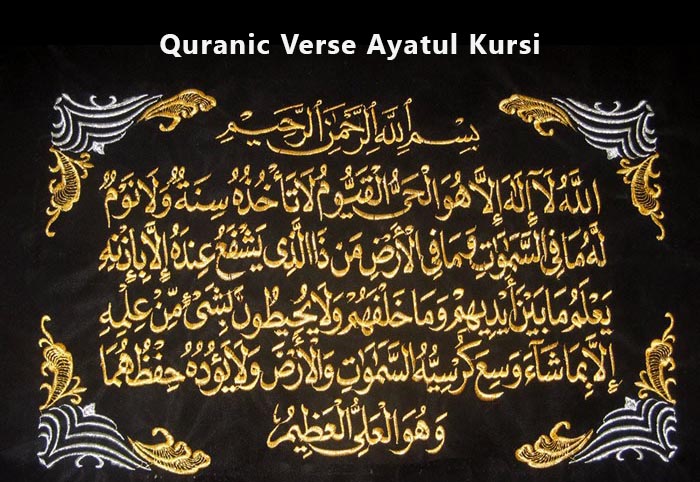 Quranic Verse Ayatul Kursi
بِسْمِ ٱللَّهِ ٱلرَّحْمَٰنِ ٱلرَّحِيمِ
اللَّهُ لَآ إِلَٰهَ إِلَّا هُوَ الْحَيُّ الْقَيُّومُ لَا تَأْخُذُهُ سِنَةٌ وَلَا نَوْمٌ
لَّهُ مَا فِي السَّمَٰوَٰتِ وَمَا فِي الْأَرْضِ مَن ذَا الَّذِي يَشْفَعُ عِندَهُ إِلَّا بِإِذْنِهِ
يَعْلَمُ مَا بَيْنَ أَيْدِيهِمْ وَمَا خَلْفَهُمْ وَلَا يُحِيطُونَ بِشَيْءٍ مِّنْ عِلْمِهِ
إِلَّا بِمَا شَآءَ وَسِعَ كُرْسِيُّهُ السَّمَٰوَٰتِ وَالْأَرْضَ وَلَا يَؤُدُهُ حِفْظُهُمَا
وَهُوَ الْعَلِيُّ الْعَظِيمُ